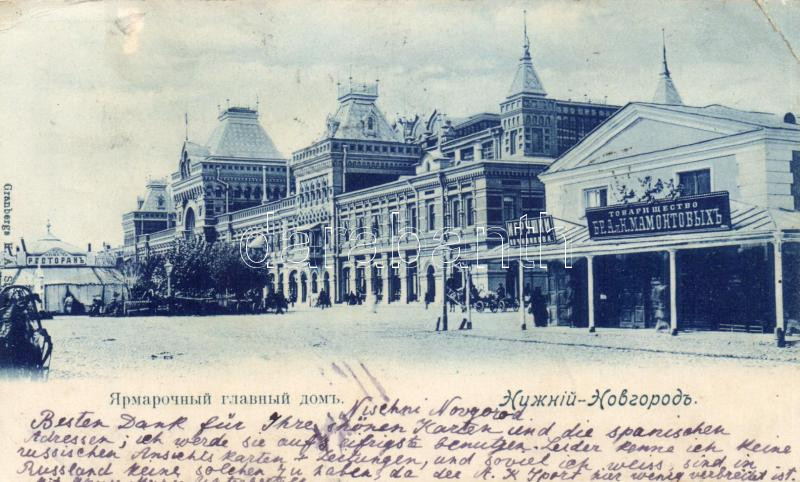 РЕСТОРАНЪ
ТОВАРИЩЕСТВО
БР. А. и Н. МАМОНТОВЫХЪ.
darabanth
Granbergs K. A. S
Ярмарочный главный домъ.
Нижній-Новгородъ.
Nischni Novgorod
Besten Dank für Ihre schönen Karten und die spanischen
Adressen; ich werde sie aufs eifrigste benutzen. Leider kenne ich keine
russischen Ansichtskarten-Zeitungen, und soviel ich weiss, sind in
Russland keine solchen zu haben, da der A. K. Sport hier wenig verbreitet ist.